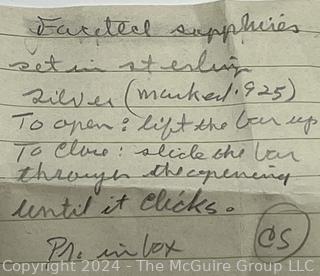 Faceted sapphires
set in sterling
silver (marked .925)
To open: lift the bar up
To close: slide the bar
through the opening
until it clicks.
Pr. in box
CS
Copyright © 2024 - The McGuire Group LLC